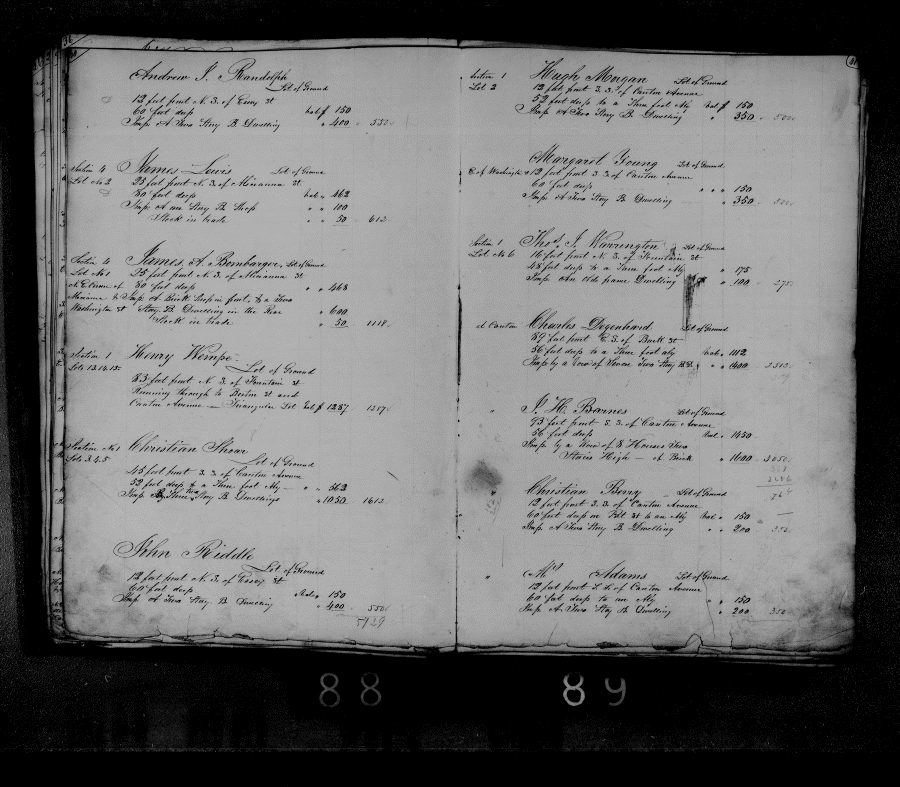 Andrew J. Randolph
Lot of Ground
12 feet front N. S. of Essex St
60 feet deep val $ 150
Imp A Two Story B. Dwelling " 400 550
Section 4 James Lewis Lot of Ground
Lot No 2 25 feet front N. S. of Minanna St
80 feet deep val " 462
Imp A one Story B. Shop " " 100
Stock in trade " " 50 612
Section 4 James A. Bombarger Lot of Ground
Lot No 1 25 feet front N. S. of Minanna St
80 feet deep " " 468
Minanna & Imp A Brick Shop in front, & a Two
Washington St Story B. Dwelling in the Rear " 600
Stock in trade " 50 1118
Section 1 Henry Wempe
Lots 13.14.15 Lot of Ground
83 feet front N. S. of Fountain St
Running through to Boston St and
Canton Avenue Triangular Lot Val $ 1287 1287
Section No 1 Christian Shear
Lots 3.4.5 Lot of Ground
45 feet front S. S. of Canton Avenue
52 feet deep to a Three foot Aly " " 562
Imp Three two Story B Dwellings " 1050 1612
John Riddle
Lot of Ground
12 feet front N. S. of Essex St
60 feet deep Val " 150
Imp A Two Story B Dwelling " 400 550
5729
Section 1 Hugh Morgan Lot of Ground
Lot 2 12 feet front S. S. of Canton Avenue
52 feet deep to a Three foot Aly Val $ 150
Imp A Two Story B. Dwelling " 350 500
Margaret Young Lot of Ground
E of Washington 12 feet front S. S. of Canton Avenue
60 feet deep " " " 150
Imp A Two Story B Dwelling " 350 500
Section 1 Thos. J. Warrington Lot of Ground
Lot No 6 16 feet front N. S. of Fountain St
48 feet deep to a Three foot Aly " 175
Imp An Olde frame Dwelling " 100 275
Charles Degenhard Lot of Ground
89 feet front E. S. of Burk St
56 feet deep to a Three foot aly val " 1112
Imp by a Row of Two Story B D.
J. H. Barnes Lot of Ground
93 feet front S. S. of Canton Avenue
56 feet deep Val " 1450
Imp by a Row of 8 Houses Two
Stories High of Brick " 1600 3050
Christian Berry Lot of Ground
12 feet front S. S. of Canton Avenue
60 feet deep on St to an Aly Val " 150
Imp A Two Story B. Dwelling " " 200 350
Mrs Adams Lot of Ground
12 feet front S. S. of Canton Avenue
60 feet deep to an Aly " 150
Imp A Two Story B Dwelling " " 200 350
88
89